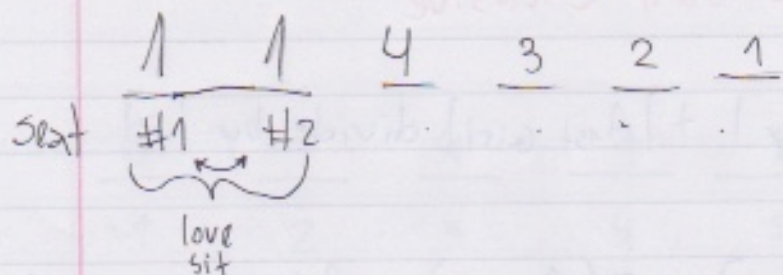 1 1 4 3 2 1
seat #1 #2
love
sit